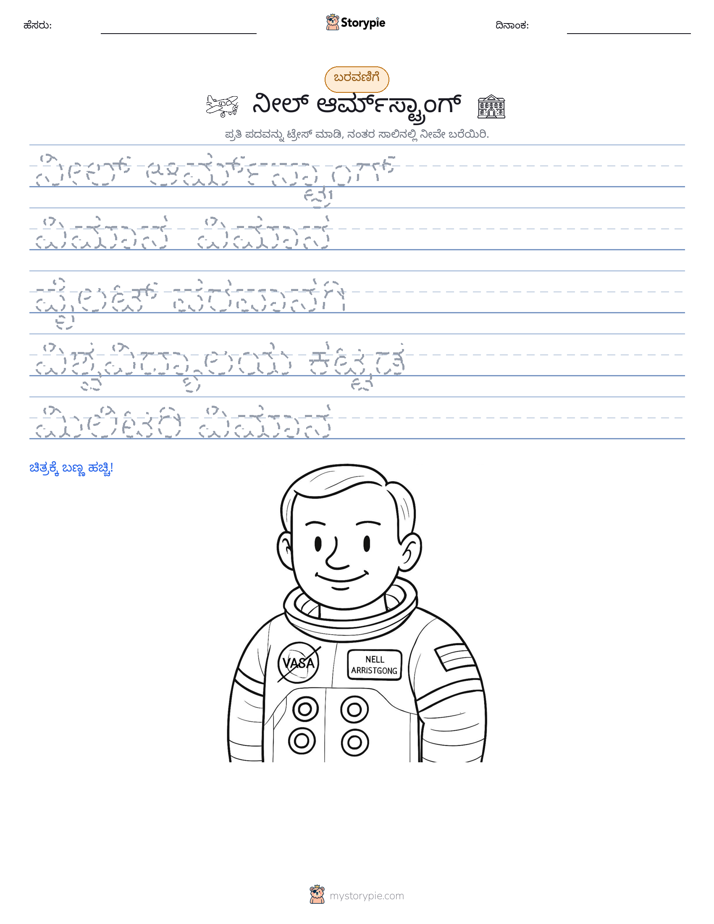 ಹೆಸರು:
Storypie
ದಿನಾಂಕ:
ಬರವಣಿಗೆ
ನೀಲ್ ಆರ್ಮ್‌ಸ್ಟ್ರಾಂಗ್
ಪ್ರತಿ ಪದವನ್ನು ಟ್ರೇಸ್ ಮಾಡಿ, ನಂತರ ಸಾಲಿನಲ್ಲಿ ನೀವೇ ಬರೆಯಿರಿ.
ನೀಲ್ ಆರ್ಮ್‌ಸ್ಟ್ರಾಂಗ್
ವಿಮಾನ ವಿಮಾನ
ಪೈಲಟ್ ಪರವಾನಗಿ
ವಿಶ್ವವಿದ್ಯಾಲಯ ಕಟ್ಟಡ
ಮಿಲಿಟರಿ ವಿಮಾನ
ಚಿತ್ರಕ್ಕೆ ಬಣ್ಣ ಹಚ್ಚಿ!
VASA
NELL
ARRISTGONG
mystorypie.com